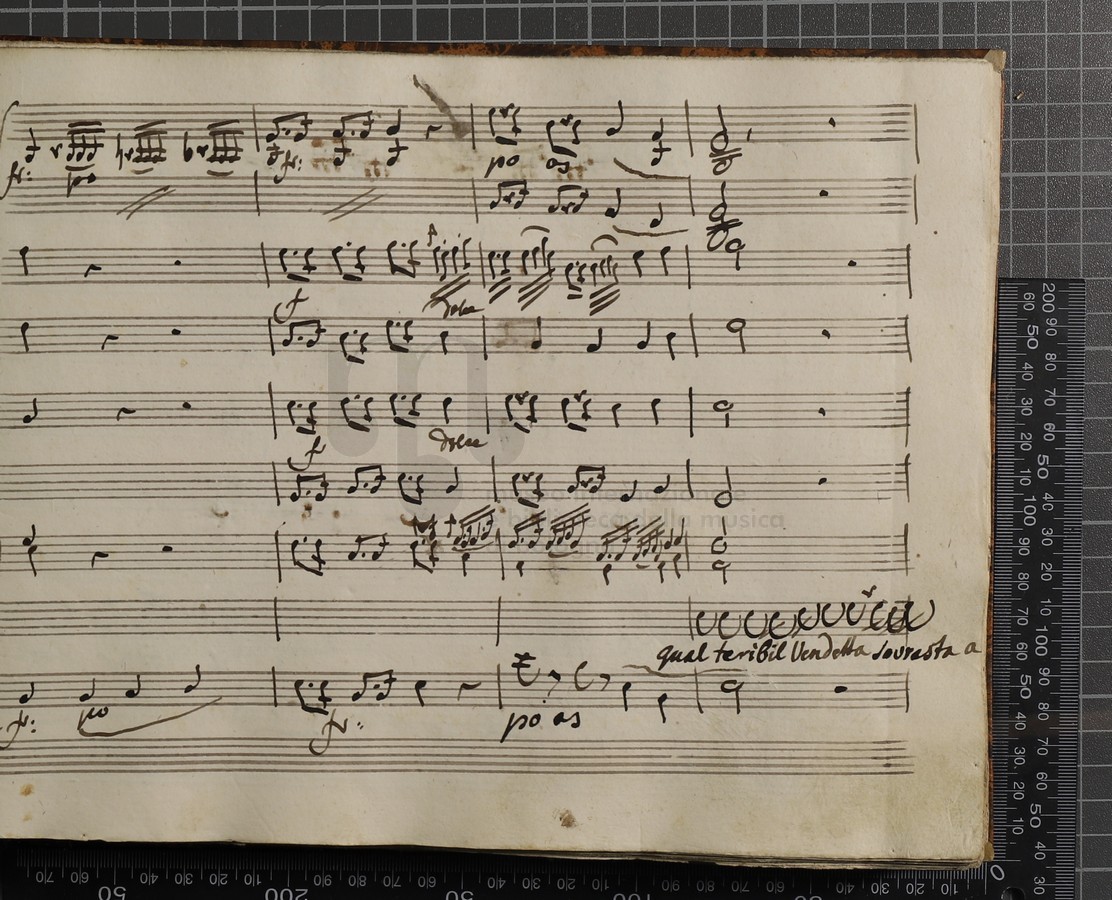 fr: po fr: po as
f dolce
f dolce
qual teribil Vendetta sovrasta a
fr: po fr: po as